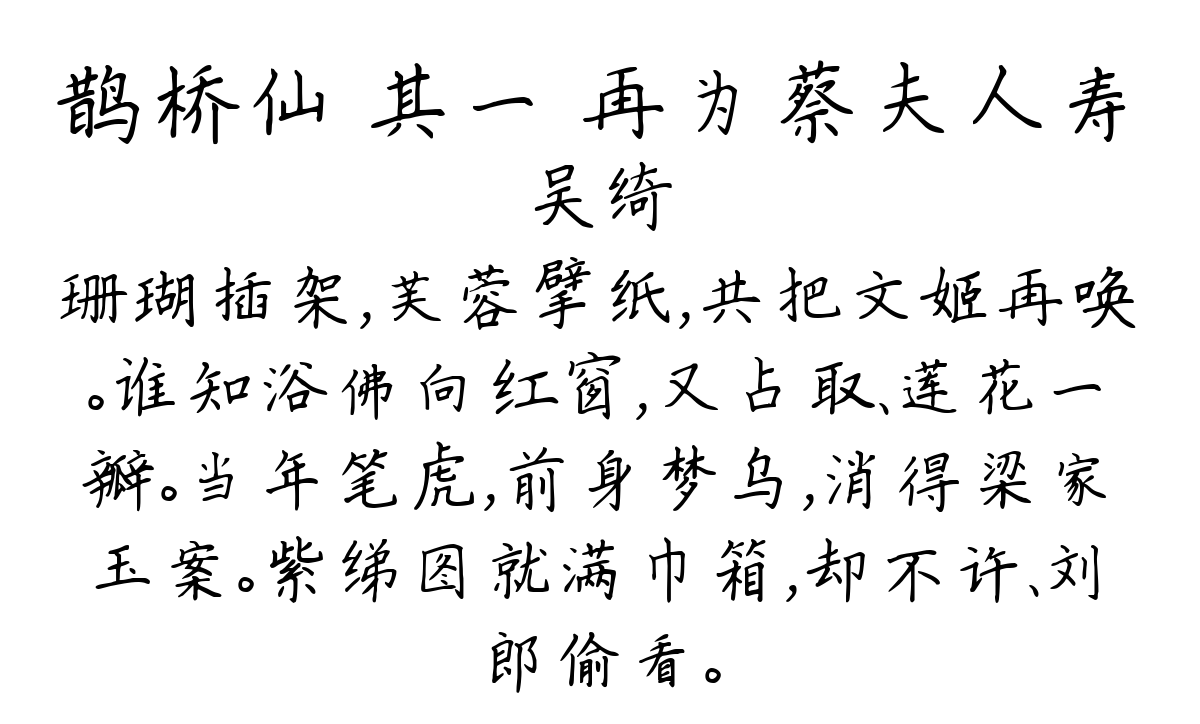 鹊桥仙 其一 再为蔡夫人寿
吴绮
珊瑚插架,芙蓉擘纸,共把文姬再唤
。谁知浴佛向红窗,又占取、莲花一
瓣。当年笔虎,前身梦乌,消得梁家
玉案。紫绨图就满巾箱,却不许、刘
郎偷看。